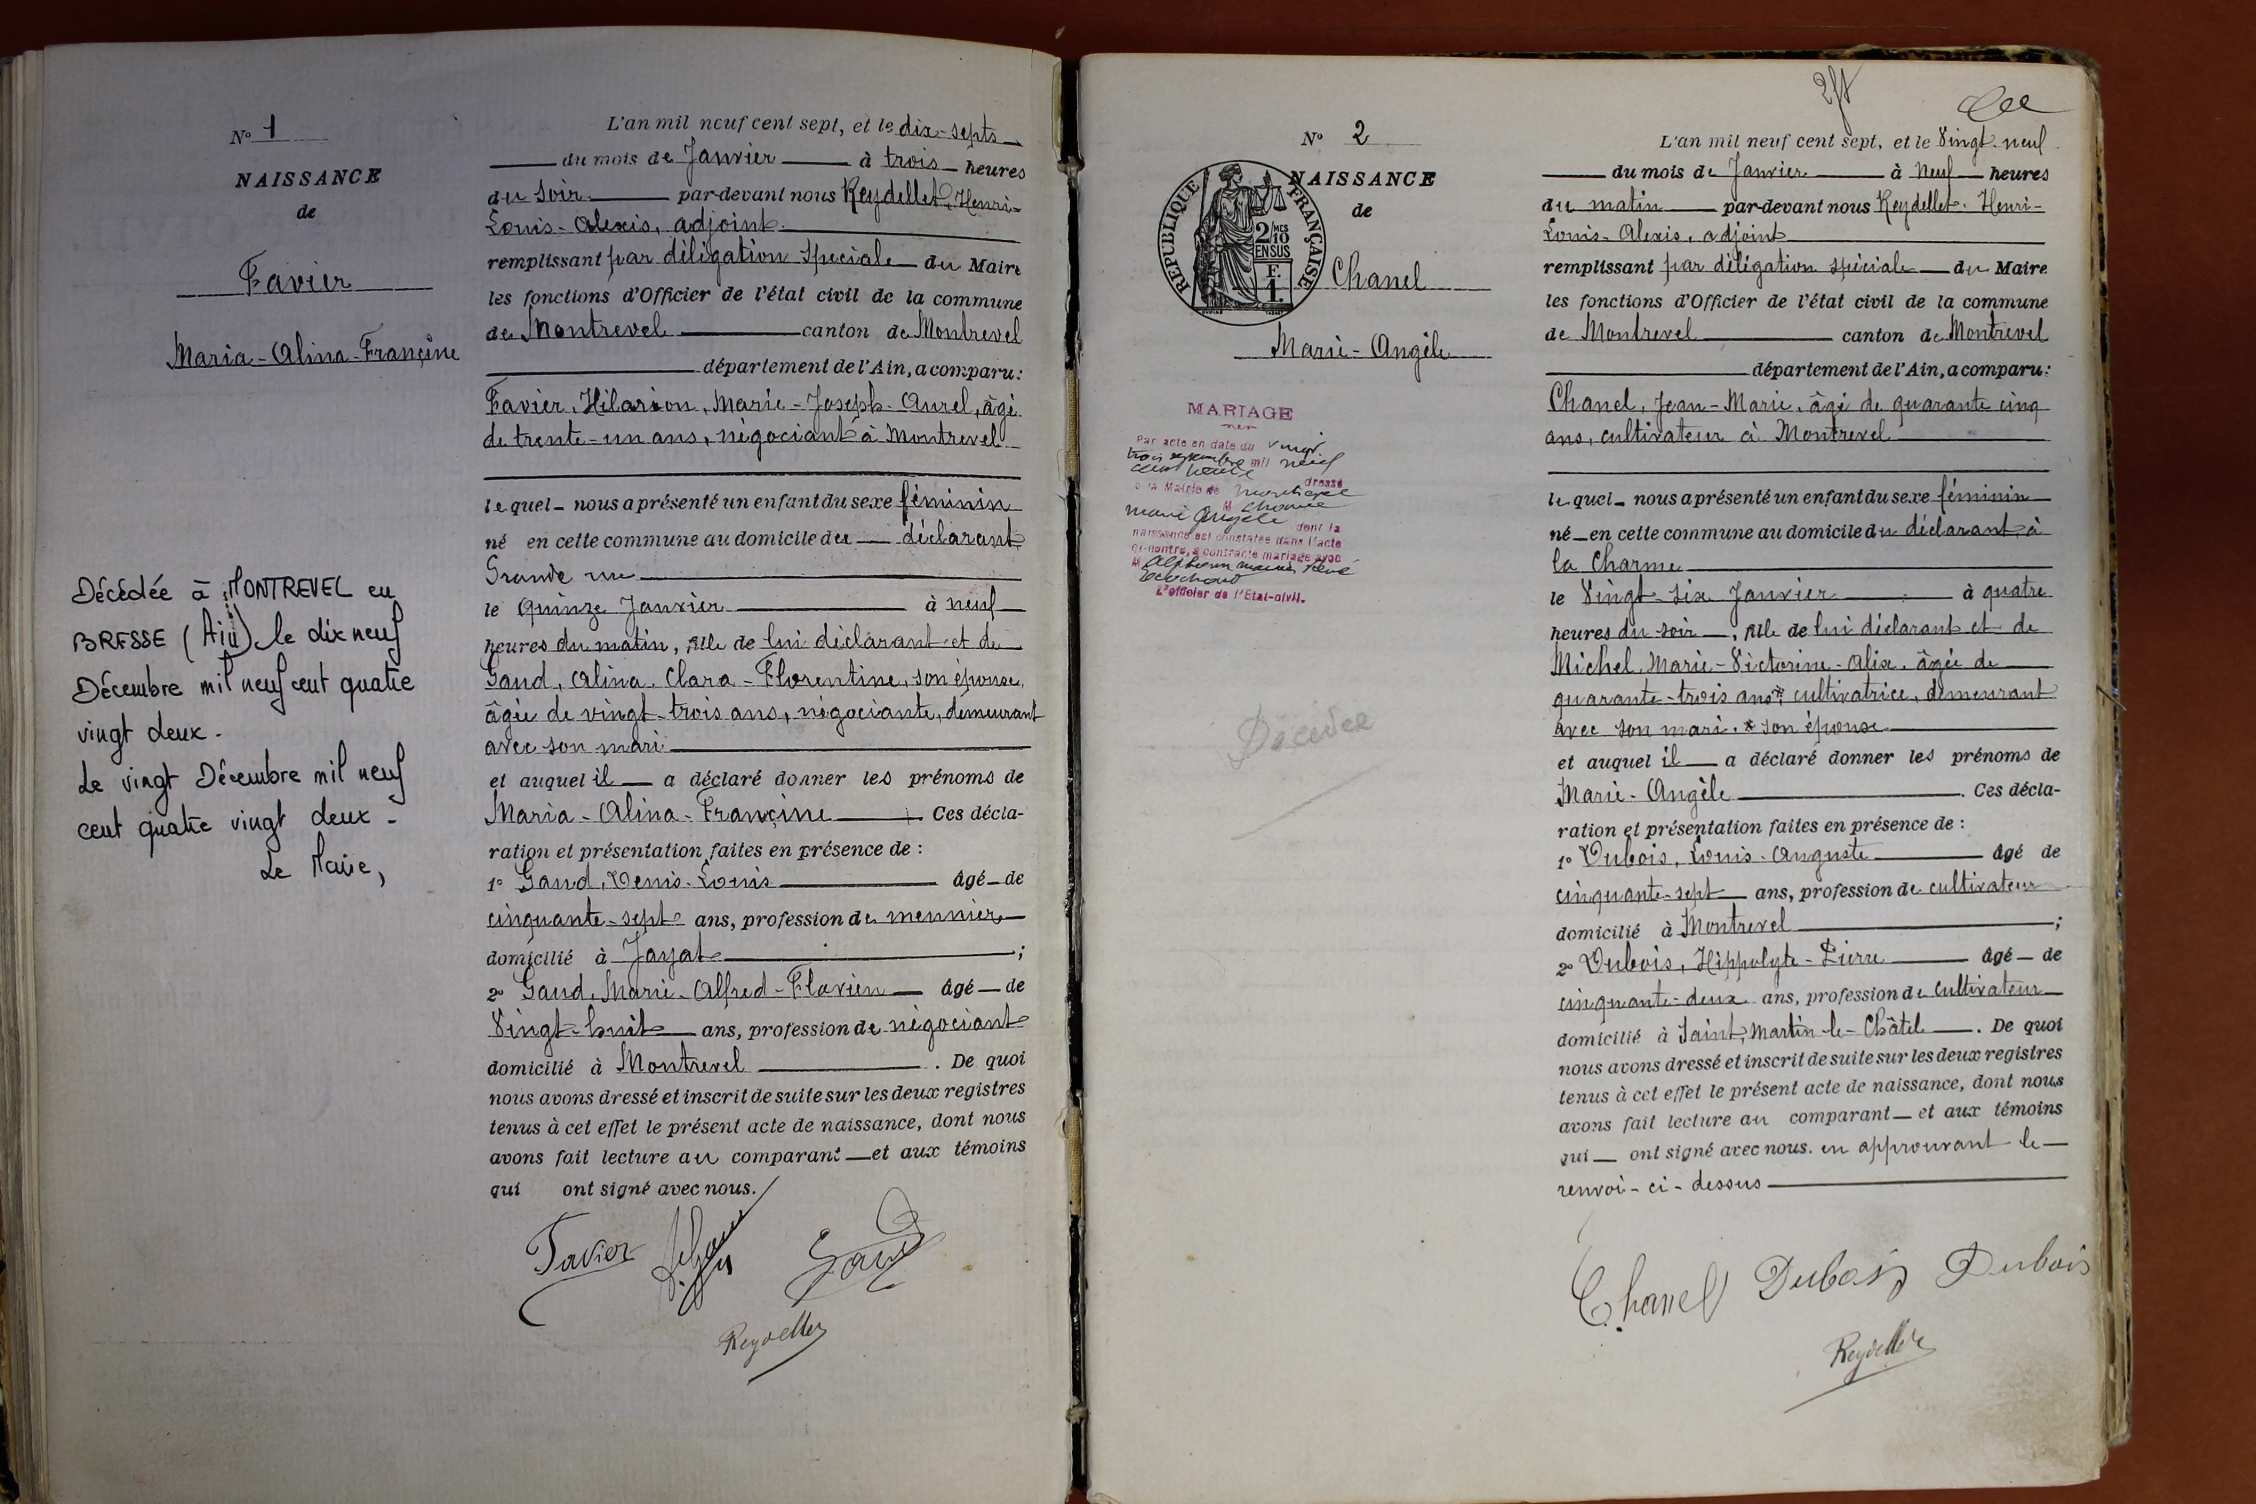 N° 1
NAISSANCE
de
Favier
Maria-Alina-Françine
Décédée à MONTREVEL en
BRESSE (Ain) le dix neuf
Décembre mil neuf cent quatre
vingt deux.
Le vingt Décembre mil neuf
cent quatre vingt deux -
Le Maire,
L'an mil neuf cent sept, et le dix-septs
du mois de Janvier à trois heures
du soir par-devant nous Reydellet, Henri-
Louis-Alexis, adjoint
remplissant par délégation spéciale du Maire
les fonctions d'Officier de l'état civil de la commune
de Montrevel canton de Montrevel
département de l'Ain, a comparu:
Favier, Hilarion, Marie-Joseph-Aurel, âgé
de trente-un ans, négociant à Montrevel
lequel nous a présenté un enfant du sexe féminin
né en cette commune au domicile du déclarant
Grande rue
le Quinze Janvier à neuf
heures du matin, fille de lui déclarant et de
Gaud, Alina, Clara-Florentine, son épouse,
âgée de vingt-trois ans, négociante, demeurant
avec son mari
et auquel il a déclaré donner les prénoms de
Maria-Alina-Françine Ces décla-
ration et présentation faites en présence de :
1° Gaud, Denis-Louis âgé de
cinquante-sept ans, profession de meunier
domicilié à Jayat ;
2° Gaud, Marie-Alfred-Flavien âgé de
Vingt-huit ans, profession de négociant
domicilié à Montrevel . De quoi
nous avons dressé et inscrit de suite sur les deux registres
tenus à cet effet le présent acte de naissance, dont nous
avons fait lecture au comparant et aux témoins
qui ont signé avec nous.
Favier Gaud
Reydellet
N° 2
NAISSANCE
de
RÉPUBLIQUE FRANÇAISE
2/10 MES
EN SUS
F.
1.
Chanel
Marie-Angèle
MARIAGE
Par acte en date du vingt
trois septembre mil neuf
cent trente dressé
à la Mairie de Montrevel
M Chanel
Marie Angèle dont la
naissance est constatée dans l'acte
ci-contre, a contracté mariage avec
M
L'officier de l'Etat-civil.
Décédée
L'an mil neuf cent sept, et le Vingt-neuf
du mois de Janvier à Neuf heures
du matin par-devant nous Reydellet, Henri-
Louis-Alexis, adjoint
remplissant par délégation spéciale du Maire
les fonctions d'Officier de l'état civil de la commune
de Montrevel canton de Montrevel
département de l'Ain, a comparu:
Chanel, Jean-Marie, âgé de quarante cinq
ans, cultivateur à Montrevel
lequel nous a présenté un enfant du sexe féminin
né en cette commune au domicile du déclarant à
la Charme
le Vingt-six Janvier à quatre
heures du soir, fille de lui déclarant et de
Michel, Marie-Victorine-Alix, âgée de
quarante-trois ans*, cultivatrice, demeurant
avec son mari. * son épouse
et auquel il a déclaré donner les prénoms de
Marie-Angèle . Ces décla-
ration et présentation faites en présence de :
1° Dubois, Louis-Auguste âgé de
cinquante-sept ans, profession de cultivateur
domicilié à Montrevel ;
2° Dubois, Hippolyte-Pierre âgé de
cinquante-deux ans, profession de cultivateur
domicilié à Saint-Martin-le-Châtel . De quoi
nous avons dressé et inscrit de suite sur les deux registres
tenus à cet effet le présent acte de naissance, dont nous
avons fait lecture au comparant et aux témoins
qui ont signé avec nous. en approuvant le
renvoi-ci-dessus
Chanel Dubois Dubois
Reydellet